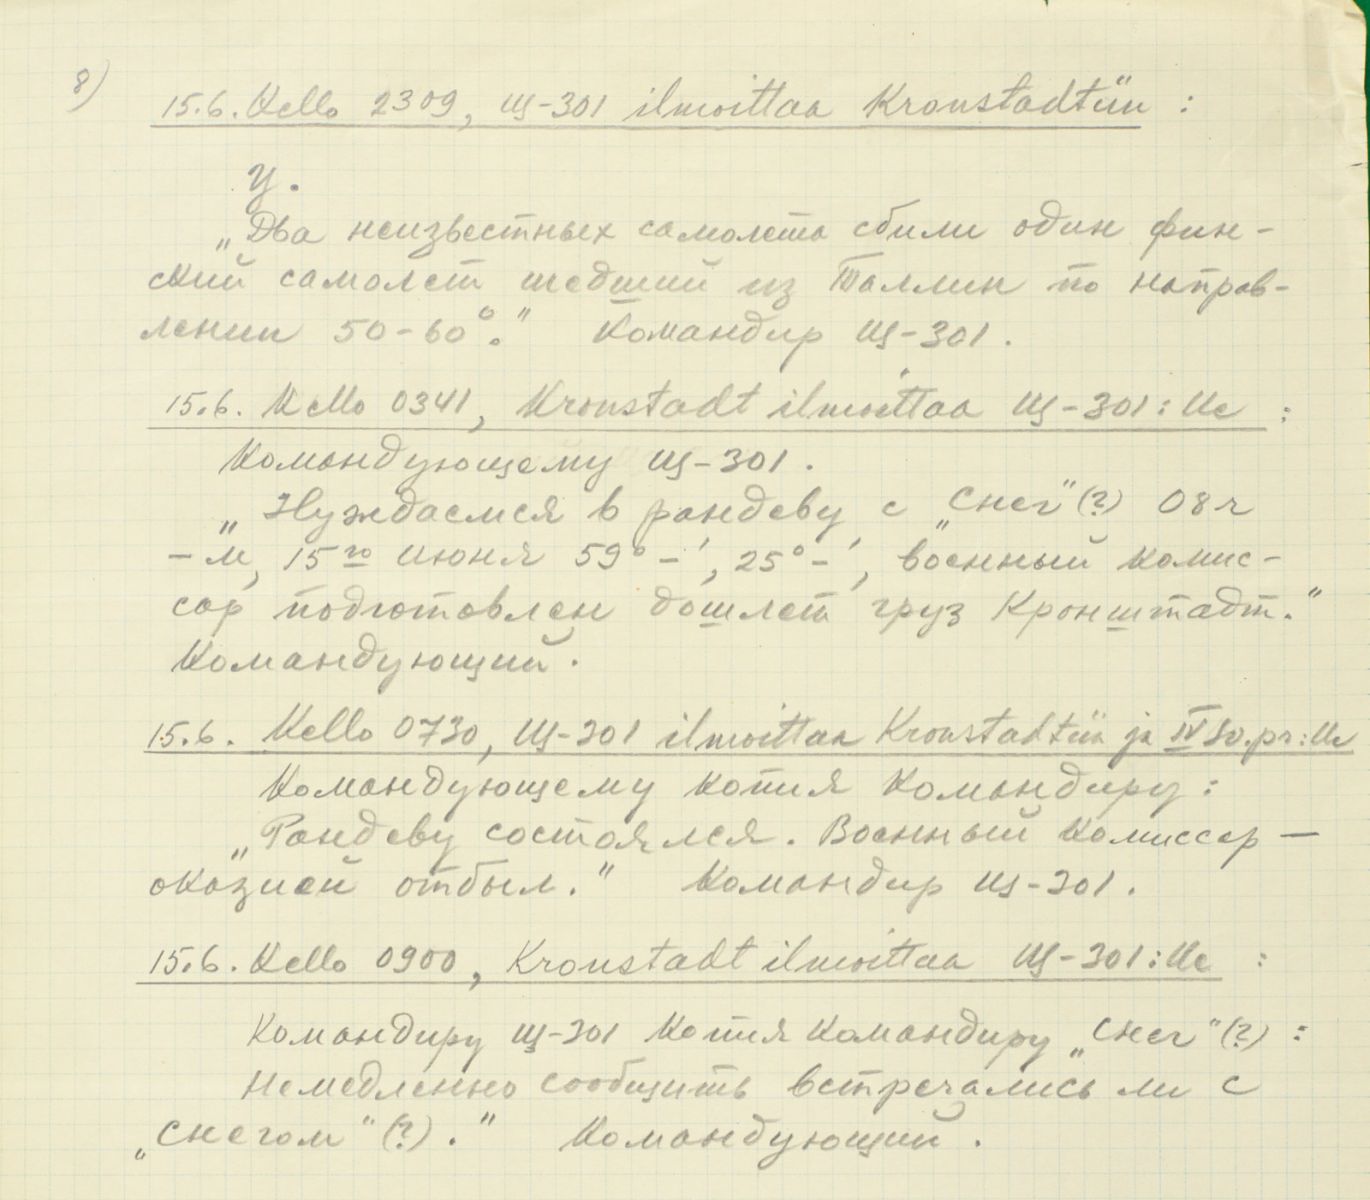 8)
15.6. Kello 2309, Щ-301 ilmoittaa Kronstadtiin :
У.
„Два неизвестных самолета сбили один фин-
ский самолет шедший из Таллин по направ-
лении 50-60°." Командир Щ-301.
15.6. Kello 0341, Kronstadt ilmoittaa Щ-301:lle :
Командующему Щ-301.
„Нуждаемся в рандеву с „Снег"(?) 08 ч
- м, 15го июня 59°-', 25°-', военный комис-
сар подготовлен дошлет груз Кронштадт."
Командующий.
15.6. Kello 0730, Щ-301 ilmoittaa Kronstadtiin ja IV So.pr:lle
Командующему копия Командиру:
„Рандеву состоялся. Военный Комиссар —
оказией отбыл." Командир Щ-301.
15.6. Kello 0900, Kronstadt ilmoittaa Щ-301:lle :
Командиру Щ-301 Копия Командиру „Снег"(?) :
Немедленно сообщить встречались ли с
„Снегом"(?)." Командующий.